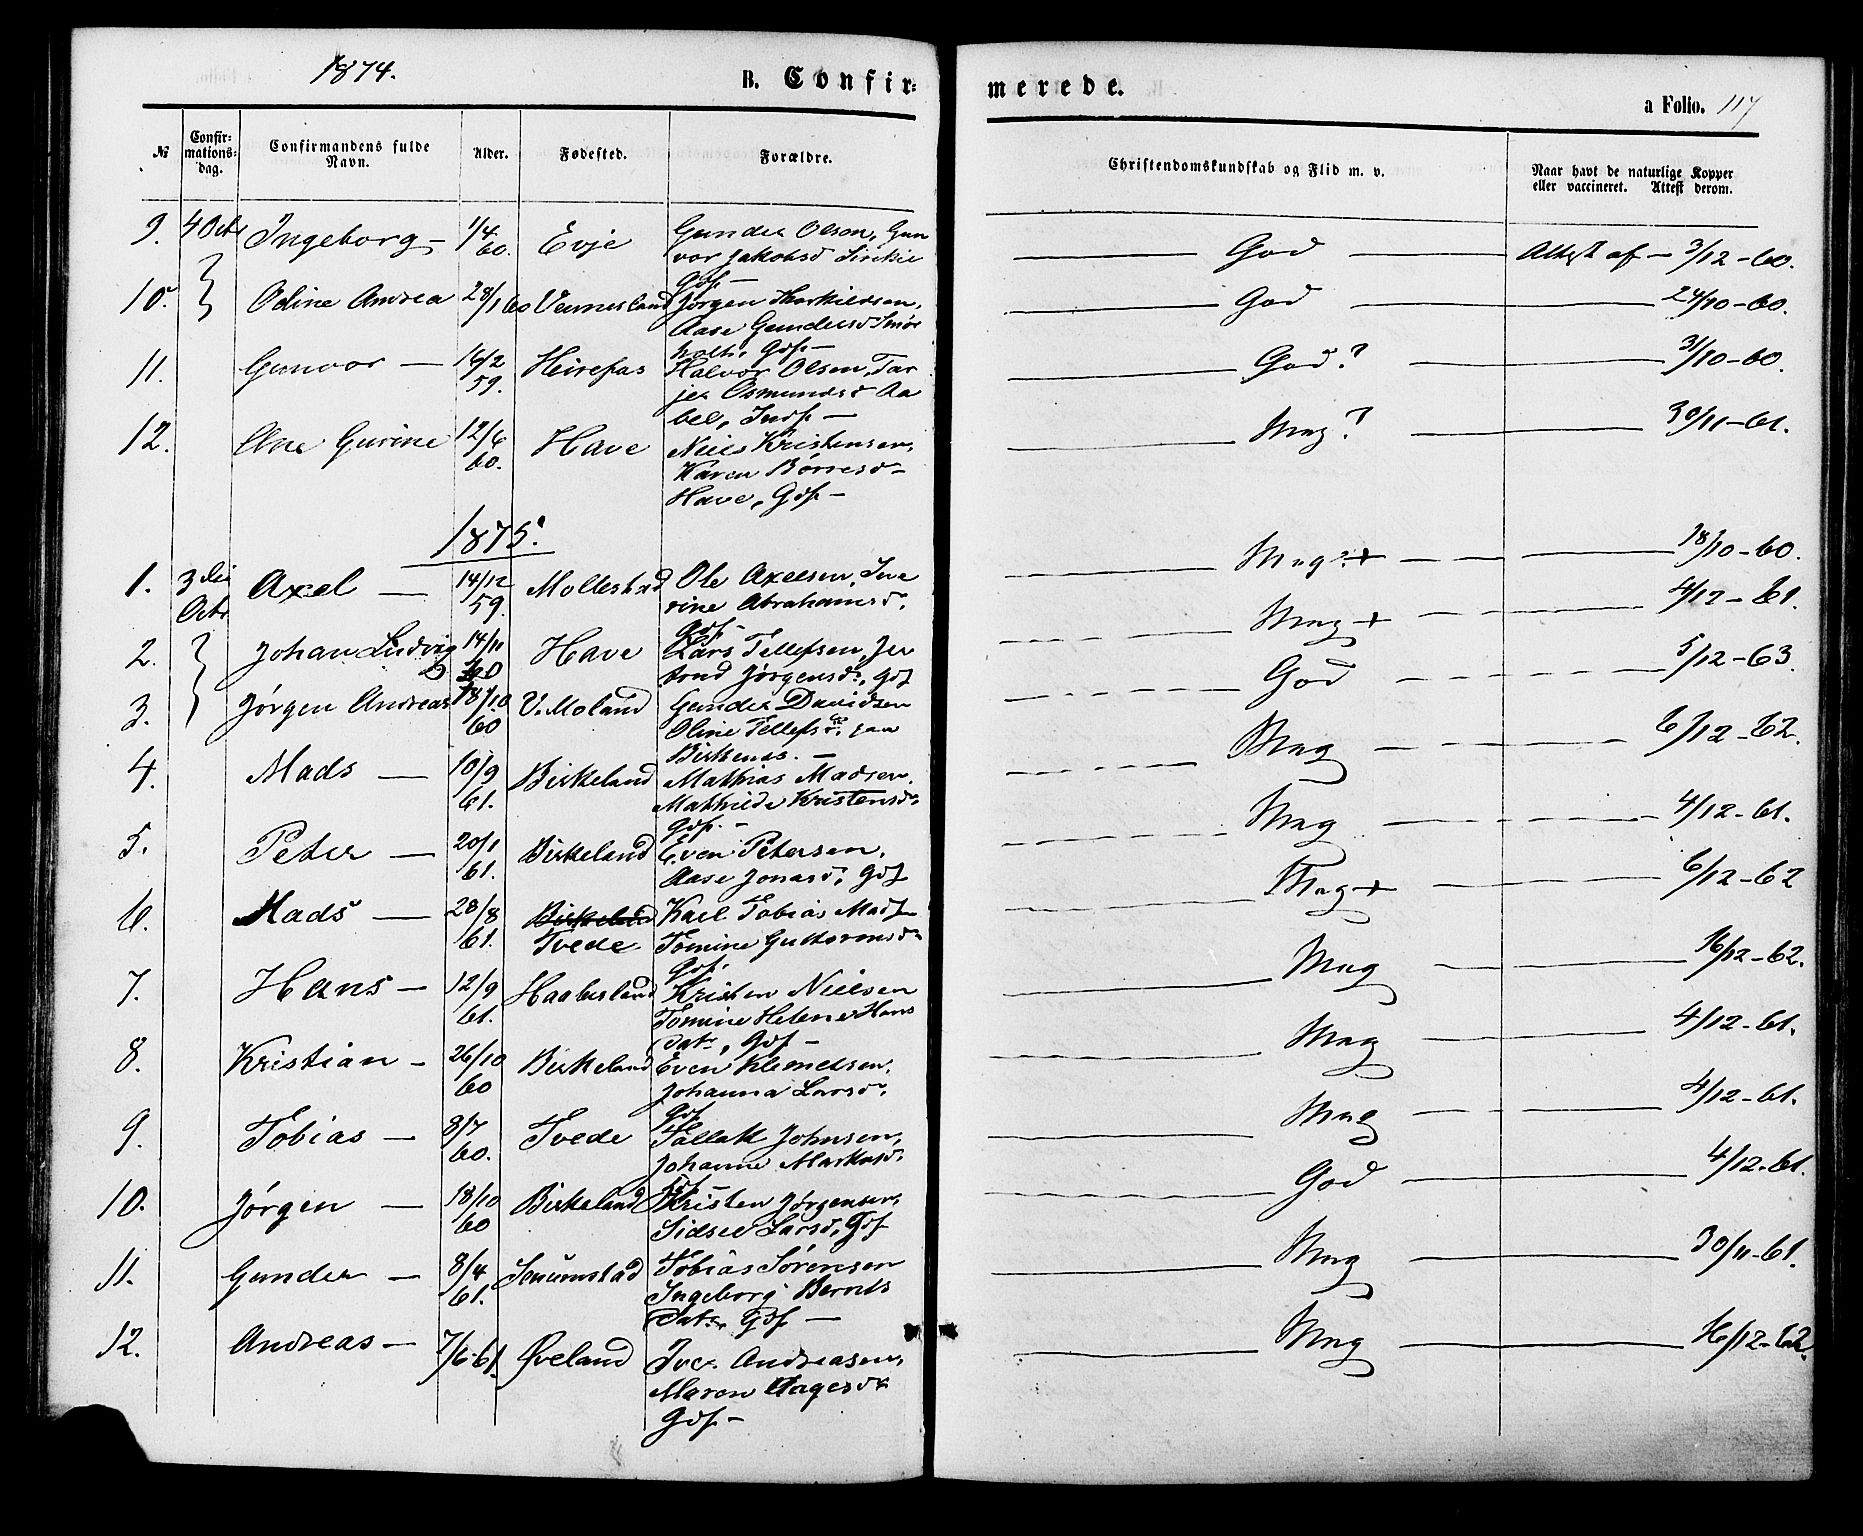 1874.
B. Confir=
merede.
a Folio. 117
№
Confir=
mations=
dag.
Confirmandens fulde
Navn.
Alder.
Fødested.
Forældre.
Christendomskundskab og Flid m. v.
Naar havt de naturlige Kopper
eller vaccineret. Attest derom.
9. 4 Octr Ingeborg – 1/4 60. Evje Gunder Olsen, Gun
vor Jakobsd
Gdf – God Attest af – 3/12 – 60.
10. Odine Andrea 28/1 60 Vennesland Jørgen
Aase Gundersd
Gdf – God 24/10 – 60.
11. Gunvor – 16/2 59. Heirefos Halvor Olsen, Tar
jer Osmundsd Aa
bel, Indf – God? 31/10 – 60.
12. Ane Gurine 12/6 60. Have Niels Kristensen,
Karen Børresd –
Have, Gdf – Mag? 30/11 – 61.
1875.
1. 3die Octr Axel – 14/12 59. Mollestad Ole Axelsen,
Abrahamsd.
Gdf – Mag?+ 18/10 – 60.
2. Johan Ludvig 14/11 60 Have Lars Tellefsen, Jer
trud Jørgensd., Gdf Mag+ 4/12 – 61.
3. Jørgen Andreas 18/10 60 V. Moland Gunder Davidsen
Oline Tellefsd.
Birkenæs. – God 5/12 – 63.
4. Mads – 10/9 61. Birkeland Mathias Madsen.
Mathilde Kristensd.
Gdf. – Mag 6/12 – 62.
5. Peter – 20/1 61. Birkeland Even Petersen,
Aase Jonasd., Gdf Mag 4/12 – 61.
6. Mads – 28/8 61. Birkeland
Tvede Karl Tobias Mads
Tomine Guttormsd.
Gdf. Mag+ 6/12 – 62
7. Hans – 12/9 61. Haabesland Kristen Nielsen
Tomine Helene Hans
datr, Gdf – Mag 16/12 – 62.
8. Kristian – 26/10 60 Birkeland Even Klemetsen,
Johanna Larsd.
Gdf Mag 4/12 – 61.
9. Tobias – 8/7 60. Tvede Tallak Johnsen,
Johanne Markusd.
Gdf Mag 4/12 – 61.
10. Jørgen – 18/10 60 Birkeland Kristen Jørgensen,
Sidsel Larsd., Gdf God 4/12 – 61.
11. Gunder – 8/4 61. Senumstad Tobias Sørensen
Ingeborg Bernts
Datr, Gdf – Mag 30/11 – 61.
12. Andreas – 7/6 – 61. Øveland Iver Andreasen,
Maren Aagesd
Gdf – Mag 16/12 – 62.